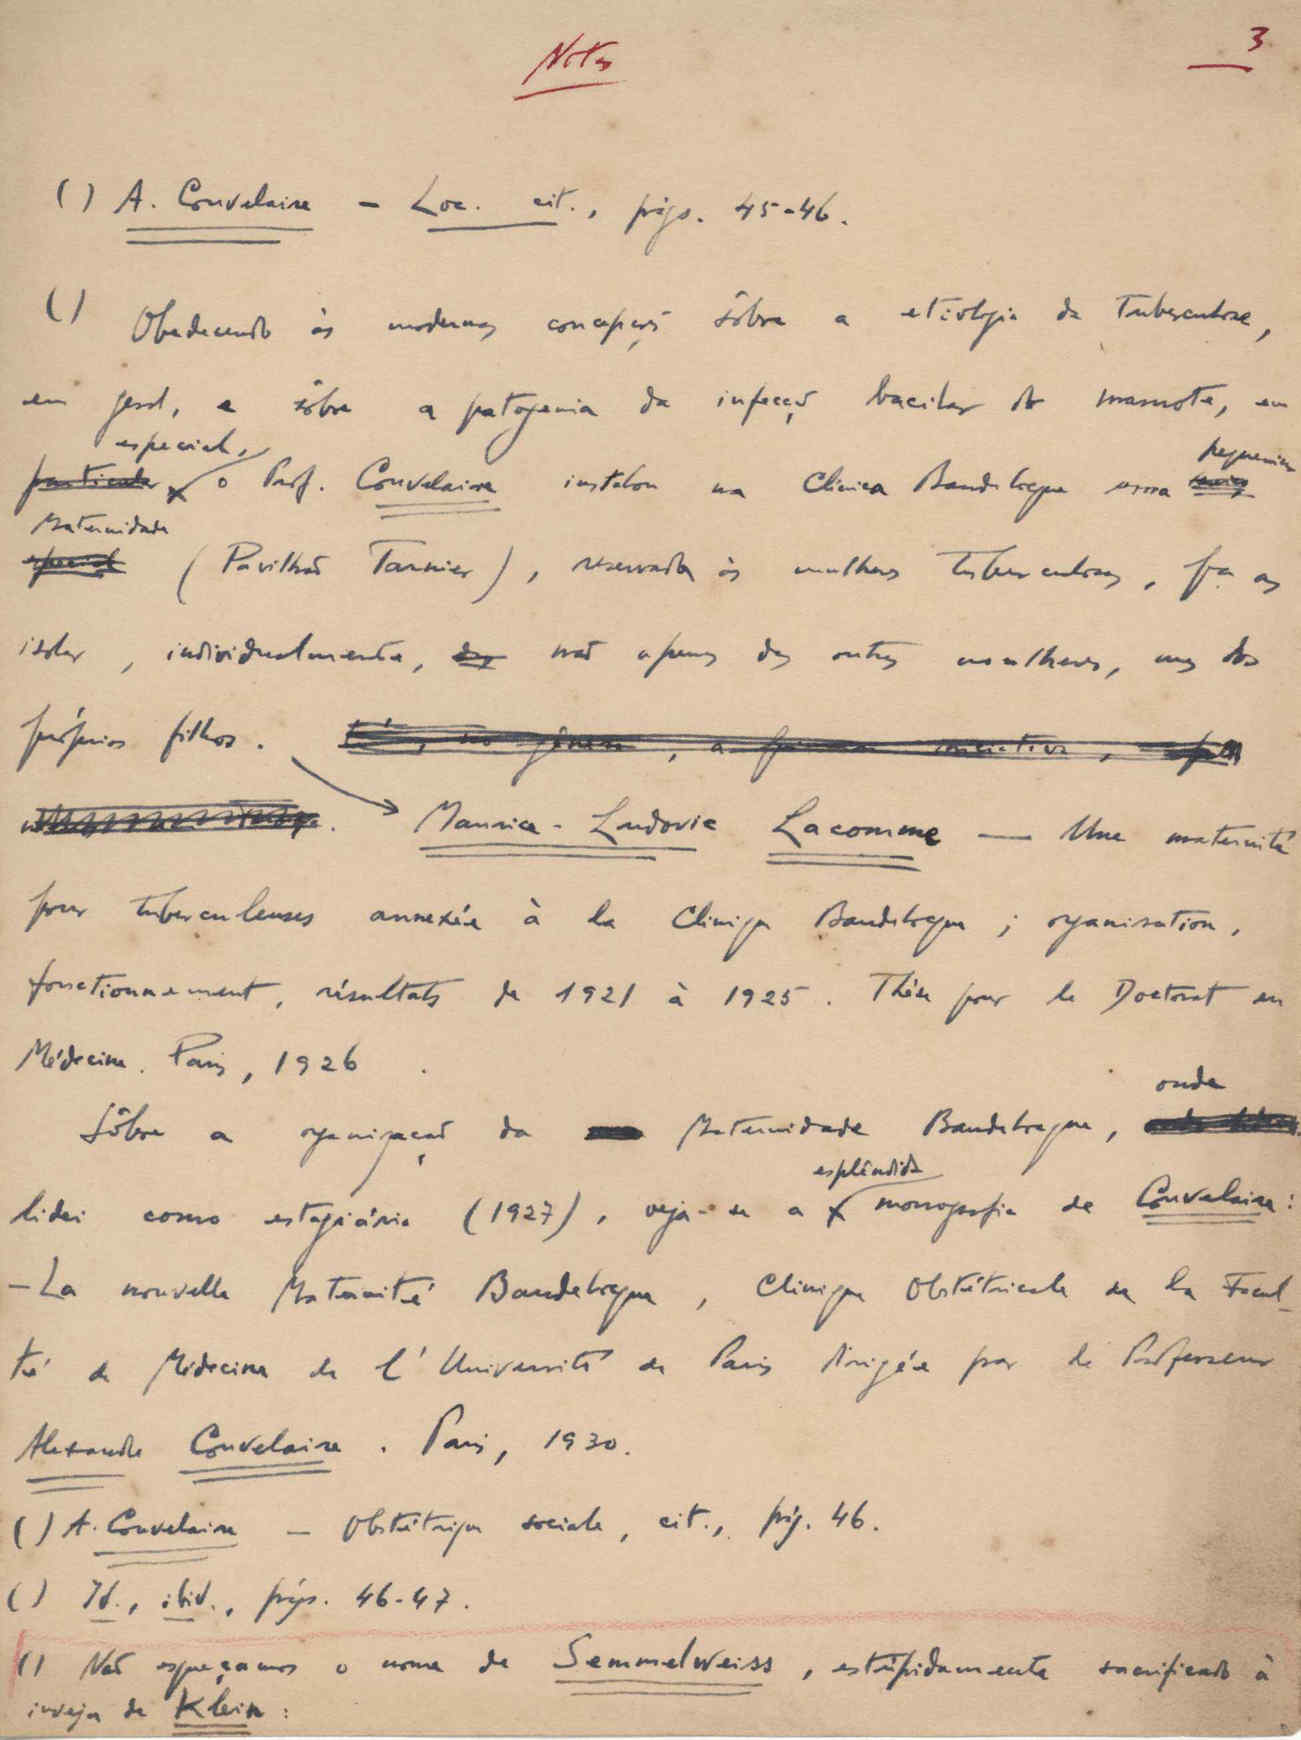 Notas
3
( ) A. Couvelaire - Loc. cit., págs. 45-46.
( ) Obedecendo às modernas concepções sôbre a etiologia da Tuberculose,
em geral, e sôbre a patogenia da infecção bacilar do mamote, em
especial,
particular o Prof. Couvelaire instalou na Clínica Baudelocque uma pequenina
Maternidade
especial (Pavilhão Tarnier), reservada às mulheres tuberculosas, pa as
isolar, individualmente, das não apenas das outras mulheres, mas dos
próprios filhos. no género, a iniciativa,
Maurice-Ludovic Lacomme — Une maternité
pour tuberculeuses annexée à la Clinique Baudelocque; organisation,
fonctionnement, résultats de 1921 à 1925. Thèse pour le Doctorat en
Médecine. Paris, 1926.
Sôbre a organização da Maternidade Baudelocque, onde
lidei como estagiário (1927), veja-se a esplêndida monografia de Couvelaire:
- La nouvelle Maternité Baudelocque, Clinique Obstétricale de la Facul-
té de Médecine de l'Université de Paris dirigée par le Professeur
Alexandre Couvelaire. Paris, 1930.
( ) A. Couvelaire - Obstétrique sociale, cit., pág. 46.
( ) Id., ibid., págs. 46-47.
( ) Não esqueçamos o nome de Semmelweiss, estùpidamente sacrificado à
inveja de Klein: